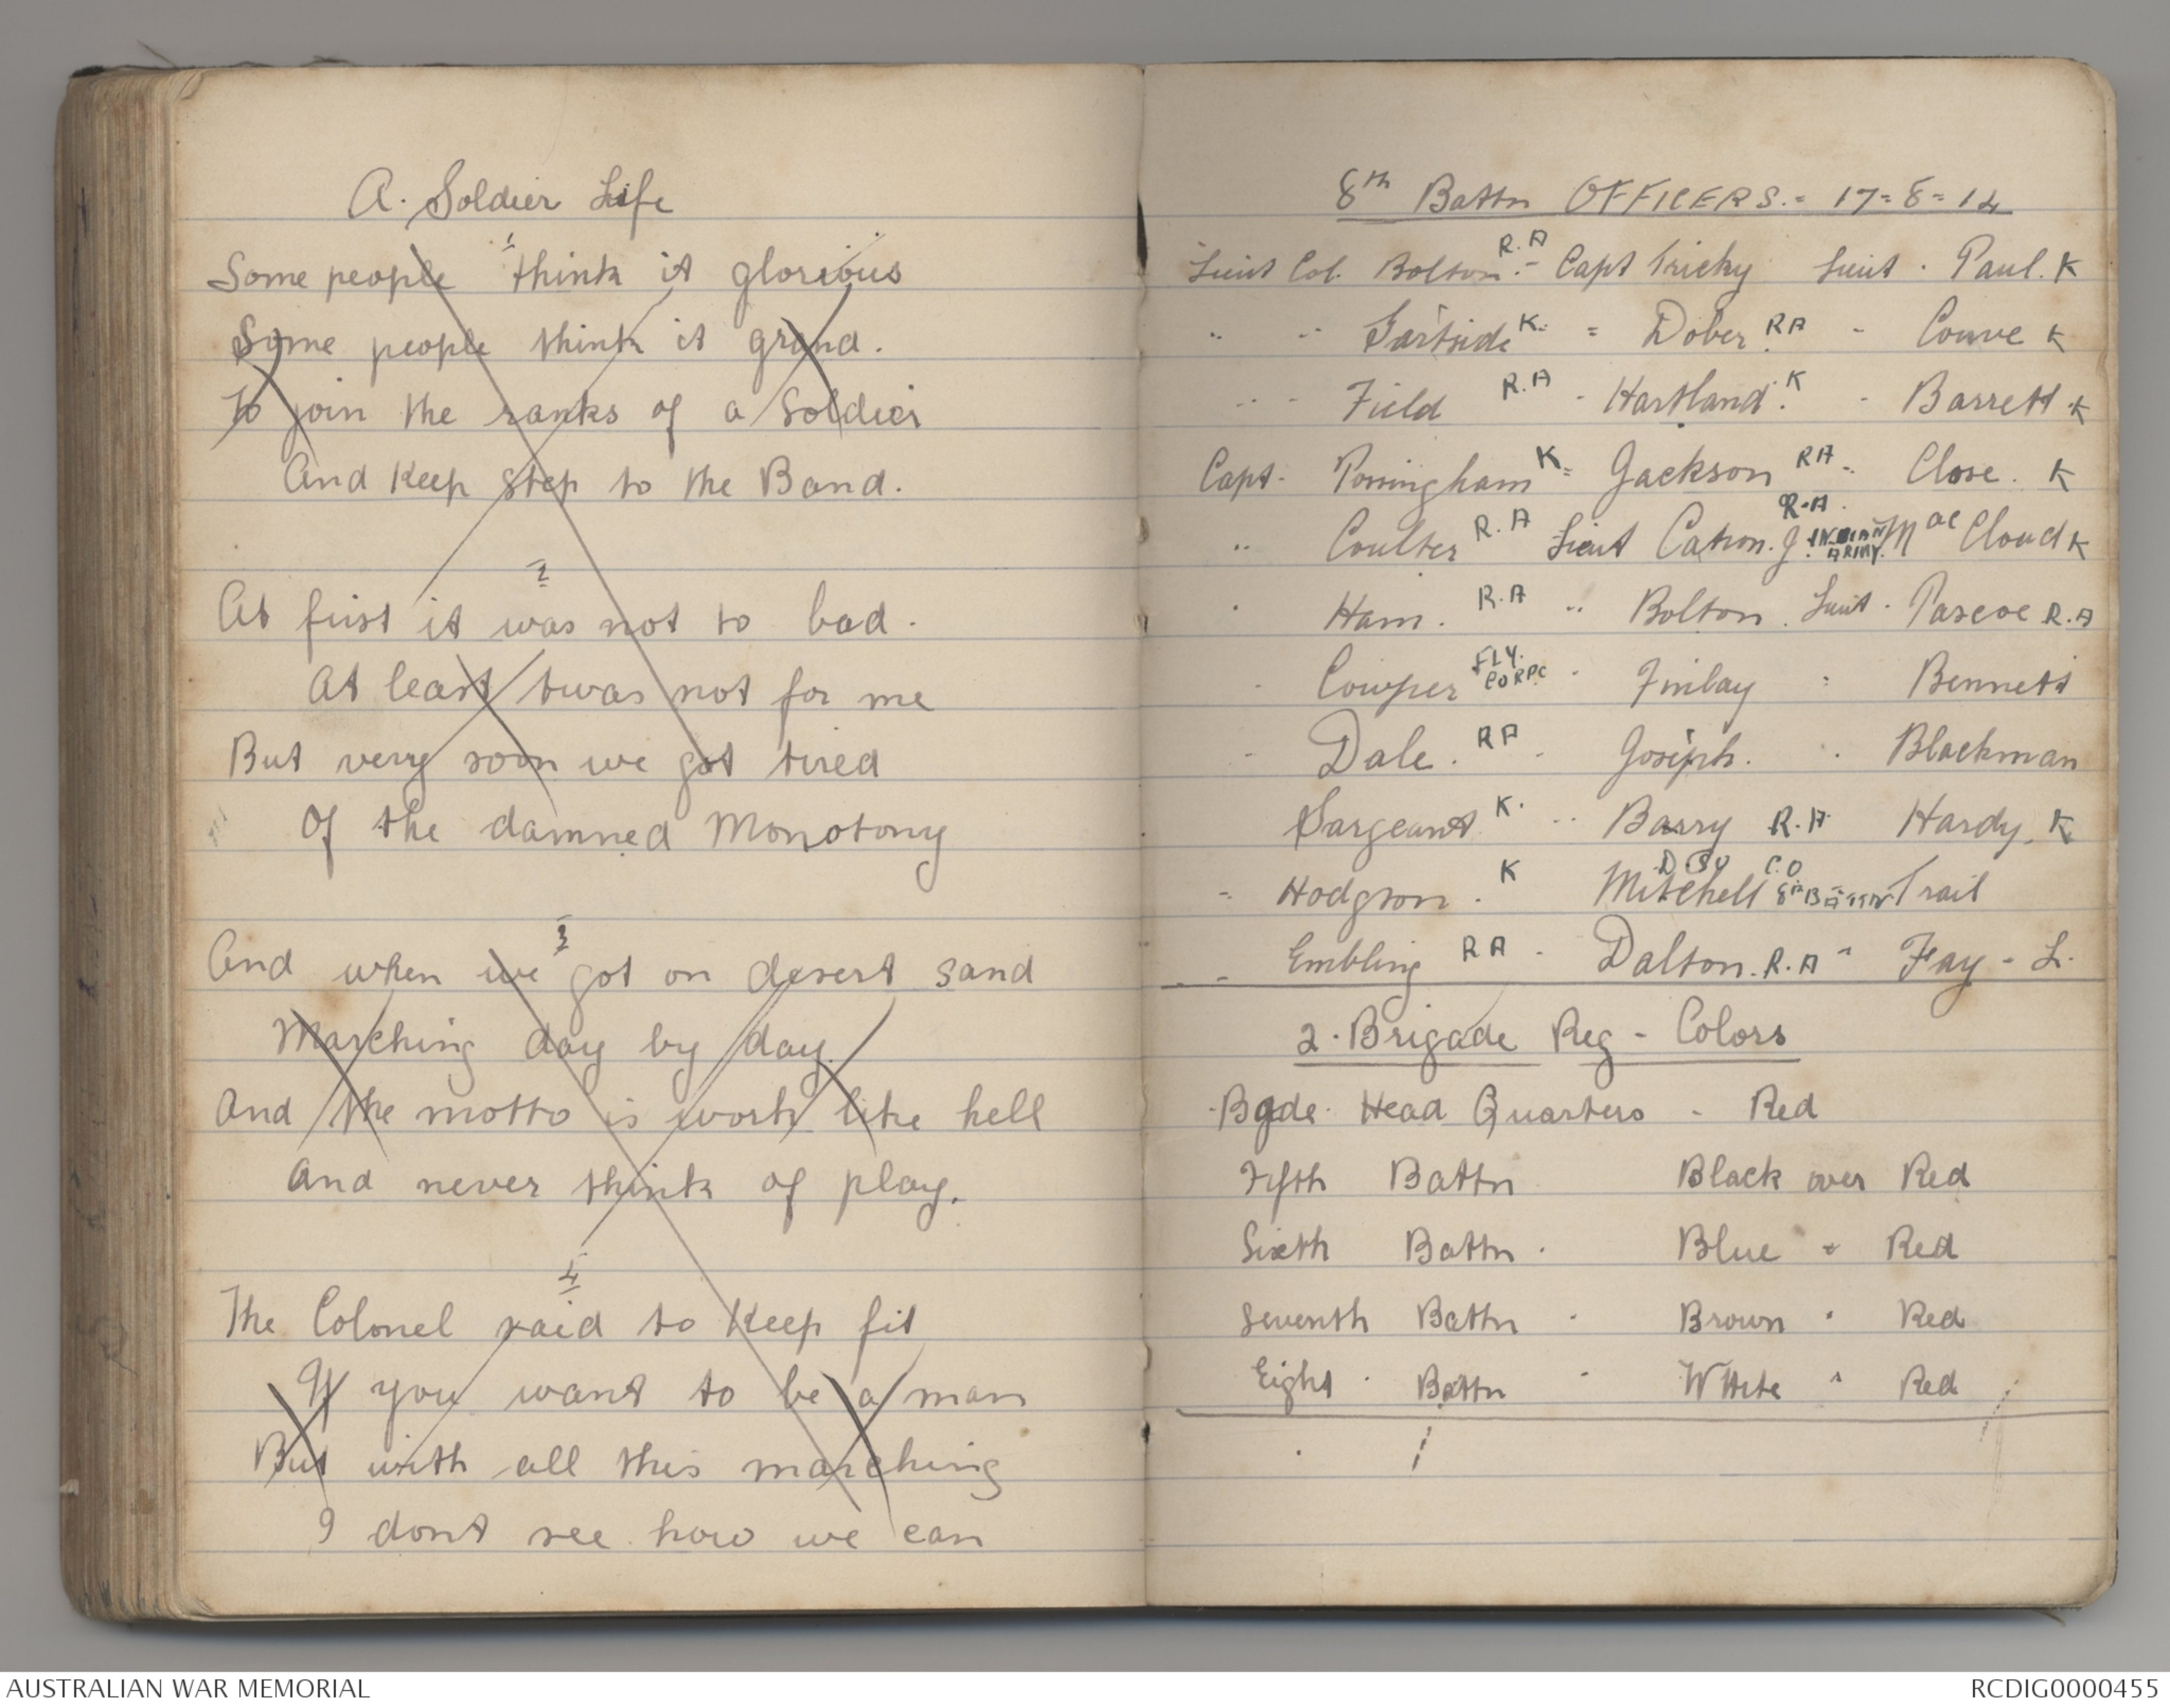 A. Soldier Life
1
Some people think it glorious
Some people think it grand.
To join the ranks of a Soldier
And Keep step to the Band.
2
At first it was not to bad.
At least twas not for me
But very soon we got tired
Of the damned Monotony
3
And when we got on desert sand
Marching day by day
And the motto is work like hell
And never think of play.
4
The Colonel said to Keep fit
If you want to be a man
But with all this marching
I dont see how we can
8th Battn OFFICERS.= 17=8=14
Lieut Col. Bolton R.A - Capt Tricky Lieut. Paul. K
" " Gartside K. = Dober RA - Couve K
" - Field R.A - Hartland. K - Barrett K
Capt. Poningham K = Jackson RA - Close. K
" Coulter R.A Lieut Catron. J R.A. INDIAN ARMY. MacCloud K
" Ham. R.A " Bolton. Lieut. Pascoe R.A
- Cowper FLY. CORPC - Finlay : Bennett
- Dale. RA - Joseph. . Blackman
Sargeant K. " Barry R.A Hardy. K
= Hodgson. K Mitchell DSO C.O 8th BATTN Trail
- Embling RA - Dalton. R.A " Fay - L.
2. Brigade Reg - Colors
Bgde. Head Quarters - Red
Fifth Battn Black over Red
Sixth Battn. Blue " Red
Seventh Battn " Brown " Red
Eight Battn " White " Red
AUSTRALIAN WAR MEMORIAL
RCDIG0000455